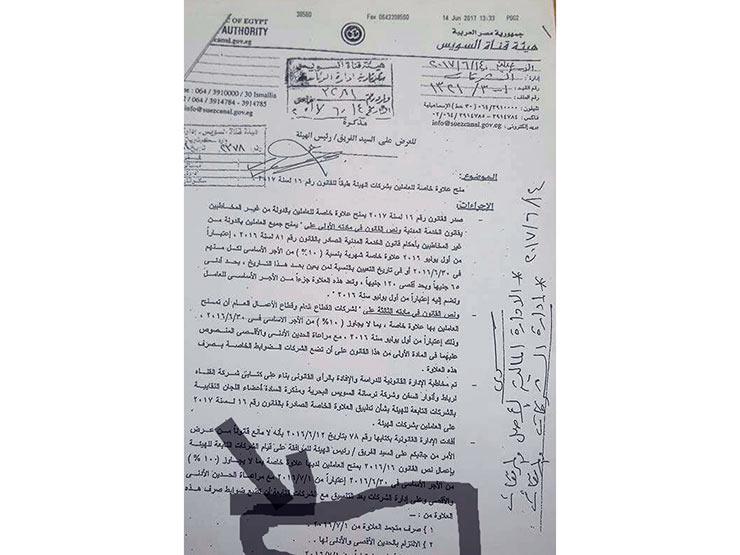 38560 Fax 0643398560 14 Jun 2017 13:33 P002
C OF EGYPT
AUTHORITY
canal.gov.eg
جمهورية مصر العربية
هيئة قناة السويس
٢٠١٧/٦/١٤
إدارة :
رقم القيد :
رقم الملف :
تليفون : ٠٦٤/٣٩١٠٠٠٠ (٣٠ خط) الإسماعيلية
فاكس : ٠٦٤/٣٩١٤٧٨٤ - ٣٩١٤٧٨٥
بريد إلكترونى : info@suezcanal.gov.eg
ne : 064 / 3910000 / 30 Ismailia
: 064 / 3914784 - 3914785
info@suezcanal.gov.eg
هيئة قناة السويس
٣٢٨١
مذكرة
للعرض على السيد الفريق/ رئيس الهيئة
الموضوع:
منح علاوة خاصة للعاملين بشركات الهيئة طبقاً للقانون رقم ١٦ لسنة ٢٠١٧
الإجراءات:
- صدر القانون رقم ١٦ لسنة ٢٠١٧ بمنح علاوة خاصة للعاملين بالدولة من غير المخاطبين
بقانون الخدمة المدنية ونص القانون فى مادته الأولى على " يمنح جميع العاملين بالدولة من
غير المخاطبين بأحكام قانون الخدمة المدنية الصادر بالقانون رقم ٨١ لسنة ٢٠١٦ ، إعتباراً
من أول يوليو ٢٠١٦ علاوة خاصة شهرية بنسبة ( ١٠% ) من الأجر الأساسى لكل منهم
فى ٢٠١٦/٦/٣٠ أو فى تاريخ التعيين بالنسبة لمن يعين بعد هذا التاريخ ، بحد أدنى
٦٥ جنيهاً وبحد أقصى ١٢٠ جنيهاً ، وتعد هذه العلاوة جزءاً من الأجر الأساسى للعامل
وتضم إليه إعتباراً من أول يوليو سنة ٢٠١٦ " .
- ونص القانون فى مادته الثالثة على " لشركات القطاع العام وقطاع الأعمال العام أن تمنح
العاملين بها علاوة خاصة ، بما لا يجاوز ( ١٠% ) من الأجر الاساسى فى ٢٠١٦/٦/٣٠ ،
وذلك إعتباراً من أول يوليو سنة ٢٠١٦ ، مع مراعاة الحدين الأدنى والأقصى المنصوص
عليهما فى المادة الأولى من هذا القانون على أن تضع الشركات الضوابط الخاصة بصرف
هذه العلاوة " .
- تم مخاطبة الإدارة القانونية للدراسة والإفادة بالرأى القانونى بناء على كتابى شركة القناة
لرباط وأنوار السفن وشركة ترسانة السويس البحرية ومذكرة السادة أعضاء اللجان النقابية
بالشركات التابعة للهيئة بشأن تطبيق العلاوة الخاصة الصادرة بالقانون رقم ١٦ لسنة ٢٠١٧
على العاملين بشركات الهيئة .
- أفادت الإدارة القانونية بكتابها رقم ٧٨ بتاريخ ٢٠١٦/٦/١٢ بأنه لا مانع قانوناً من عرض
الأمر من جانبكم على السيد الفريق / رئيس الهيئة للموافقة على قيام الشركات التابعة للهيئة
بإعمال نص القانون ٢٠١٦/١٦ بمنح العاملين لديها علاوة خاصة بما لا يجاوز (١٠%)
من الأجر الأساسى فى ٢٠١٦/٦/٣٠ إعتباراً من ٢٠١٦/٧/١ مع مراعاة الحدين الأدنى
والأقصى وعلى إدارة الشركات بعد التنسيق مع الشركات وضع ضوابط صرف هذه
العلاوة من :-
١ ) صرف متجمد العلاوة من ٢٠١٦/٧/١ .
٢ ) الالتزام بالحدين الأقصى والأدنى لها .
٢٠١٧/٦/١٤
* الادارة المالية